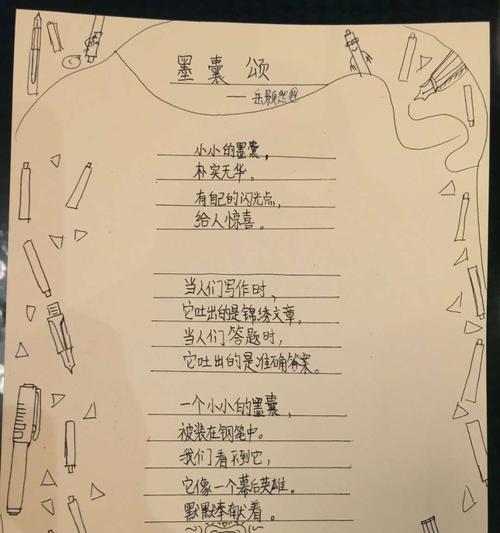 墨囊颂
——岳颢然
小小的墨囊，
朴实无华。
有自己的闪光点，
给人惊喜。
当人们写作时，
它吐出的是锦绣文章。
当人们答题时，
它吐出的是准确答案。
一个小小的墨囊，
被装在钢笔中。
我们看不到它，
它像一个幕后英雄。
默默奉献着。